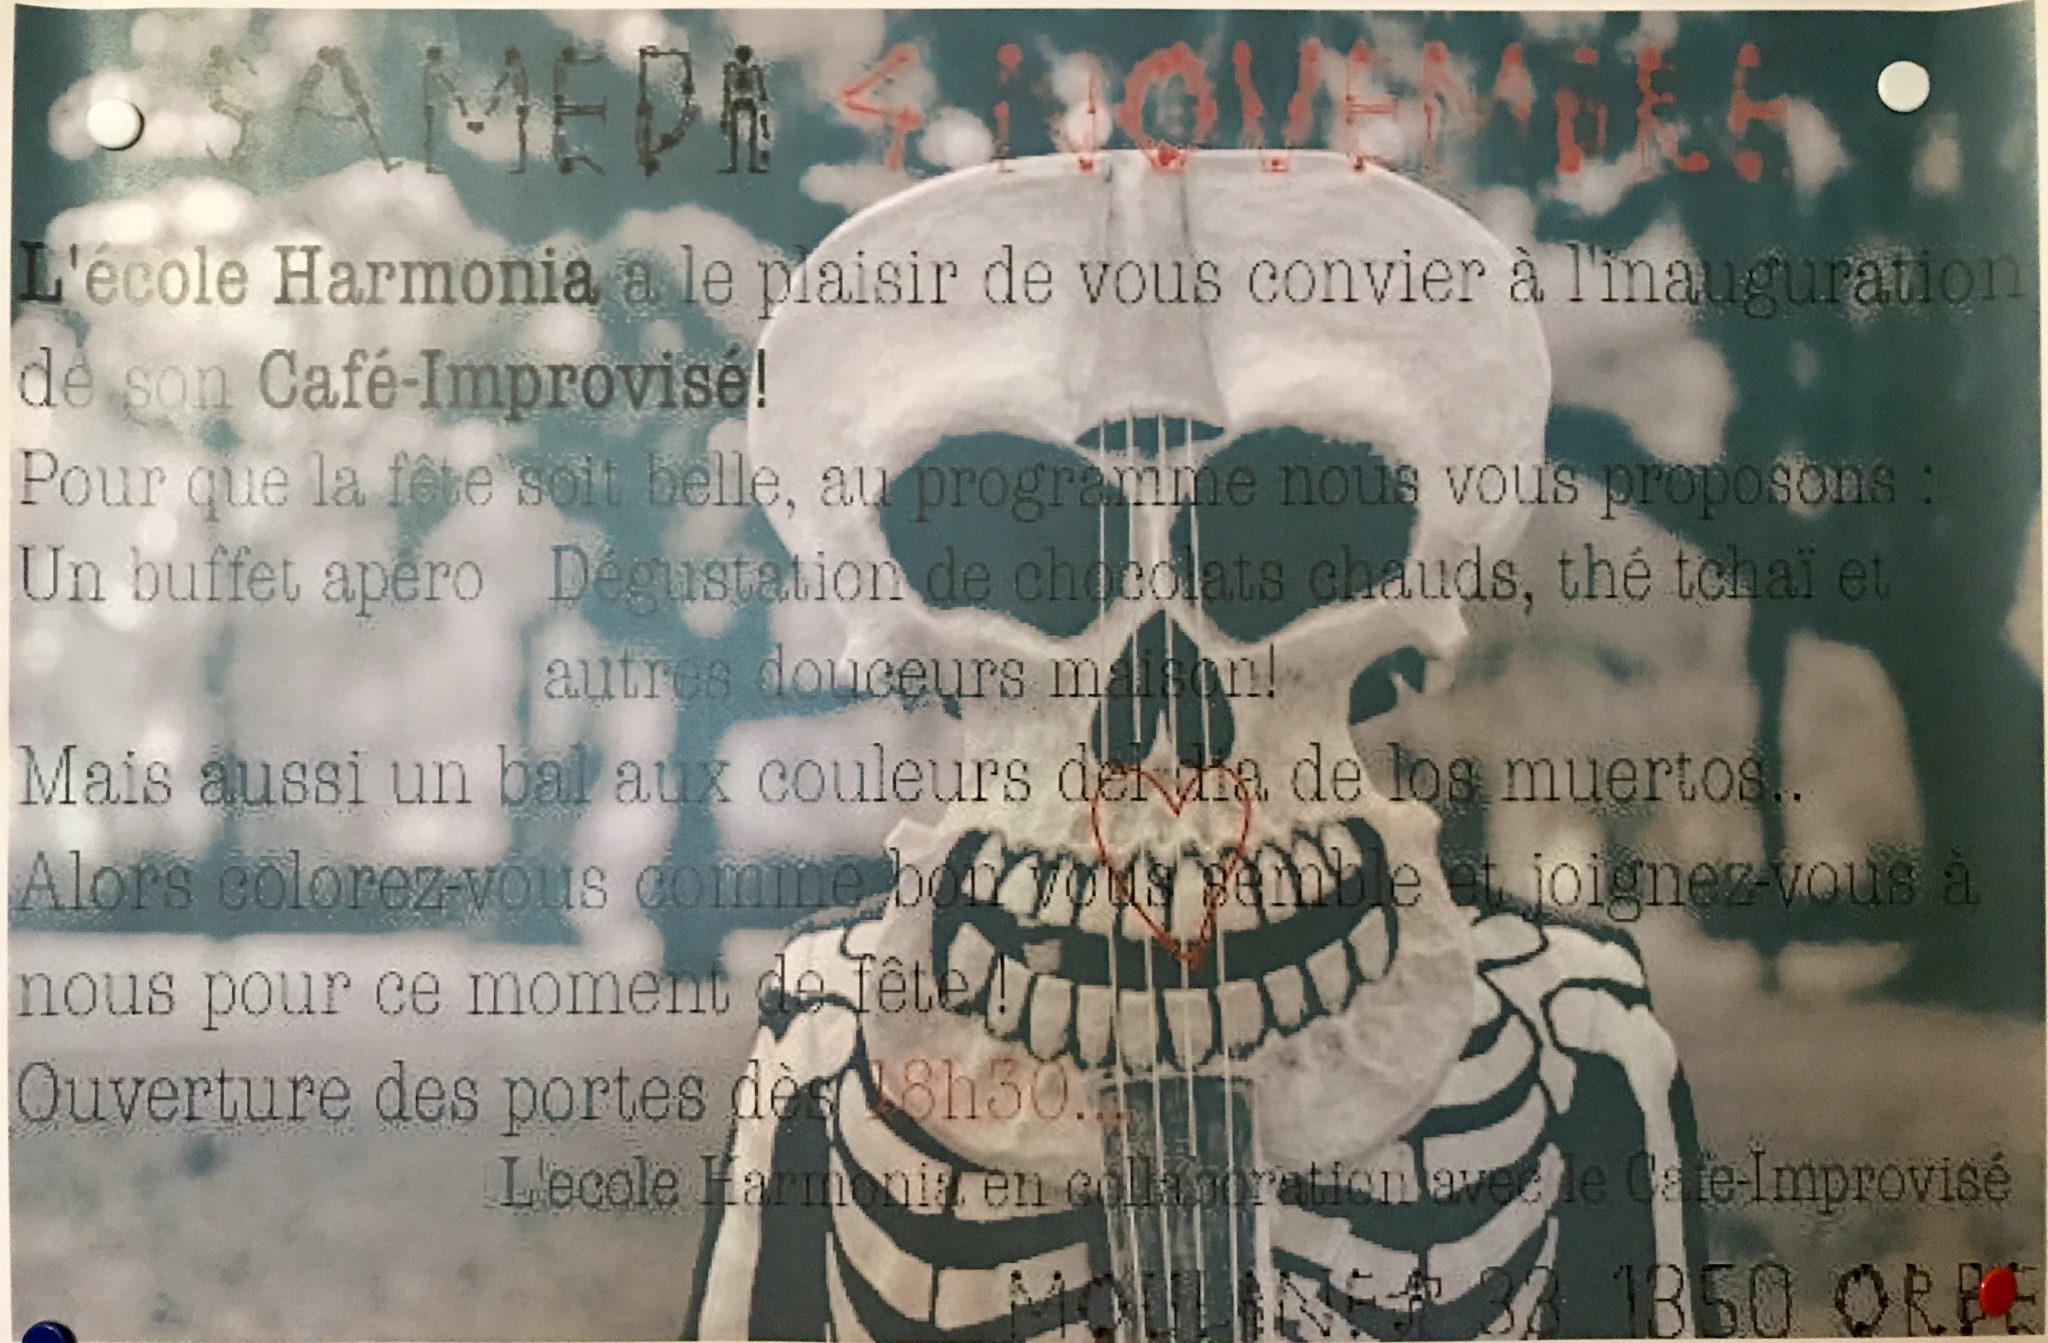 SAMEDI 4 NOVEMBRE
L'école Harmonia a le plaisir de vous convier à l'inauguration
de son Café-Improvisé!
Pour que la fête soit belle, au programme nous vous proposons :
Un buffet apéro Dégustation de chocolats chauds, thé tchaï et
autres douceurs maison!
Mais aussi un bal aux couleurs del dia de los muertos..
Alors colorez-vous comme bon vous semble et joignez-vous à
nous pour ce moment de fête !
Ouverture des portes dès 18h30...
L'ecole Harmonia en collaboration avec le Café-Improvisé
MOULINET 33 1350 ORBE